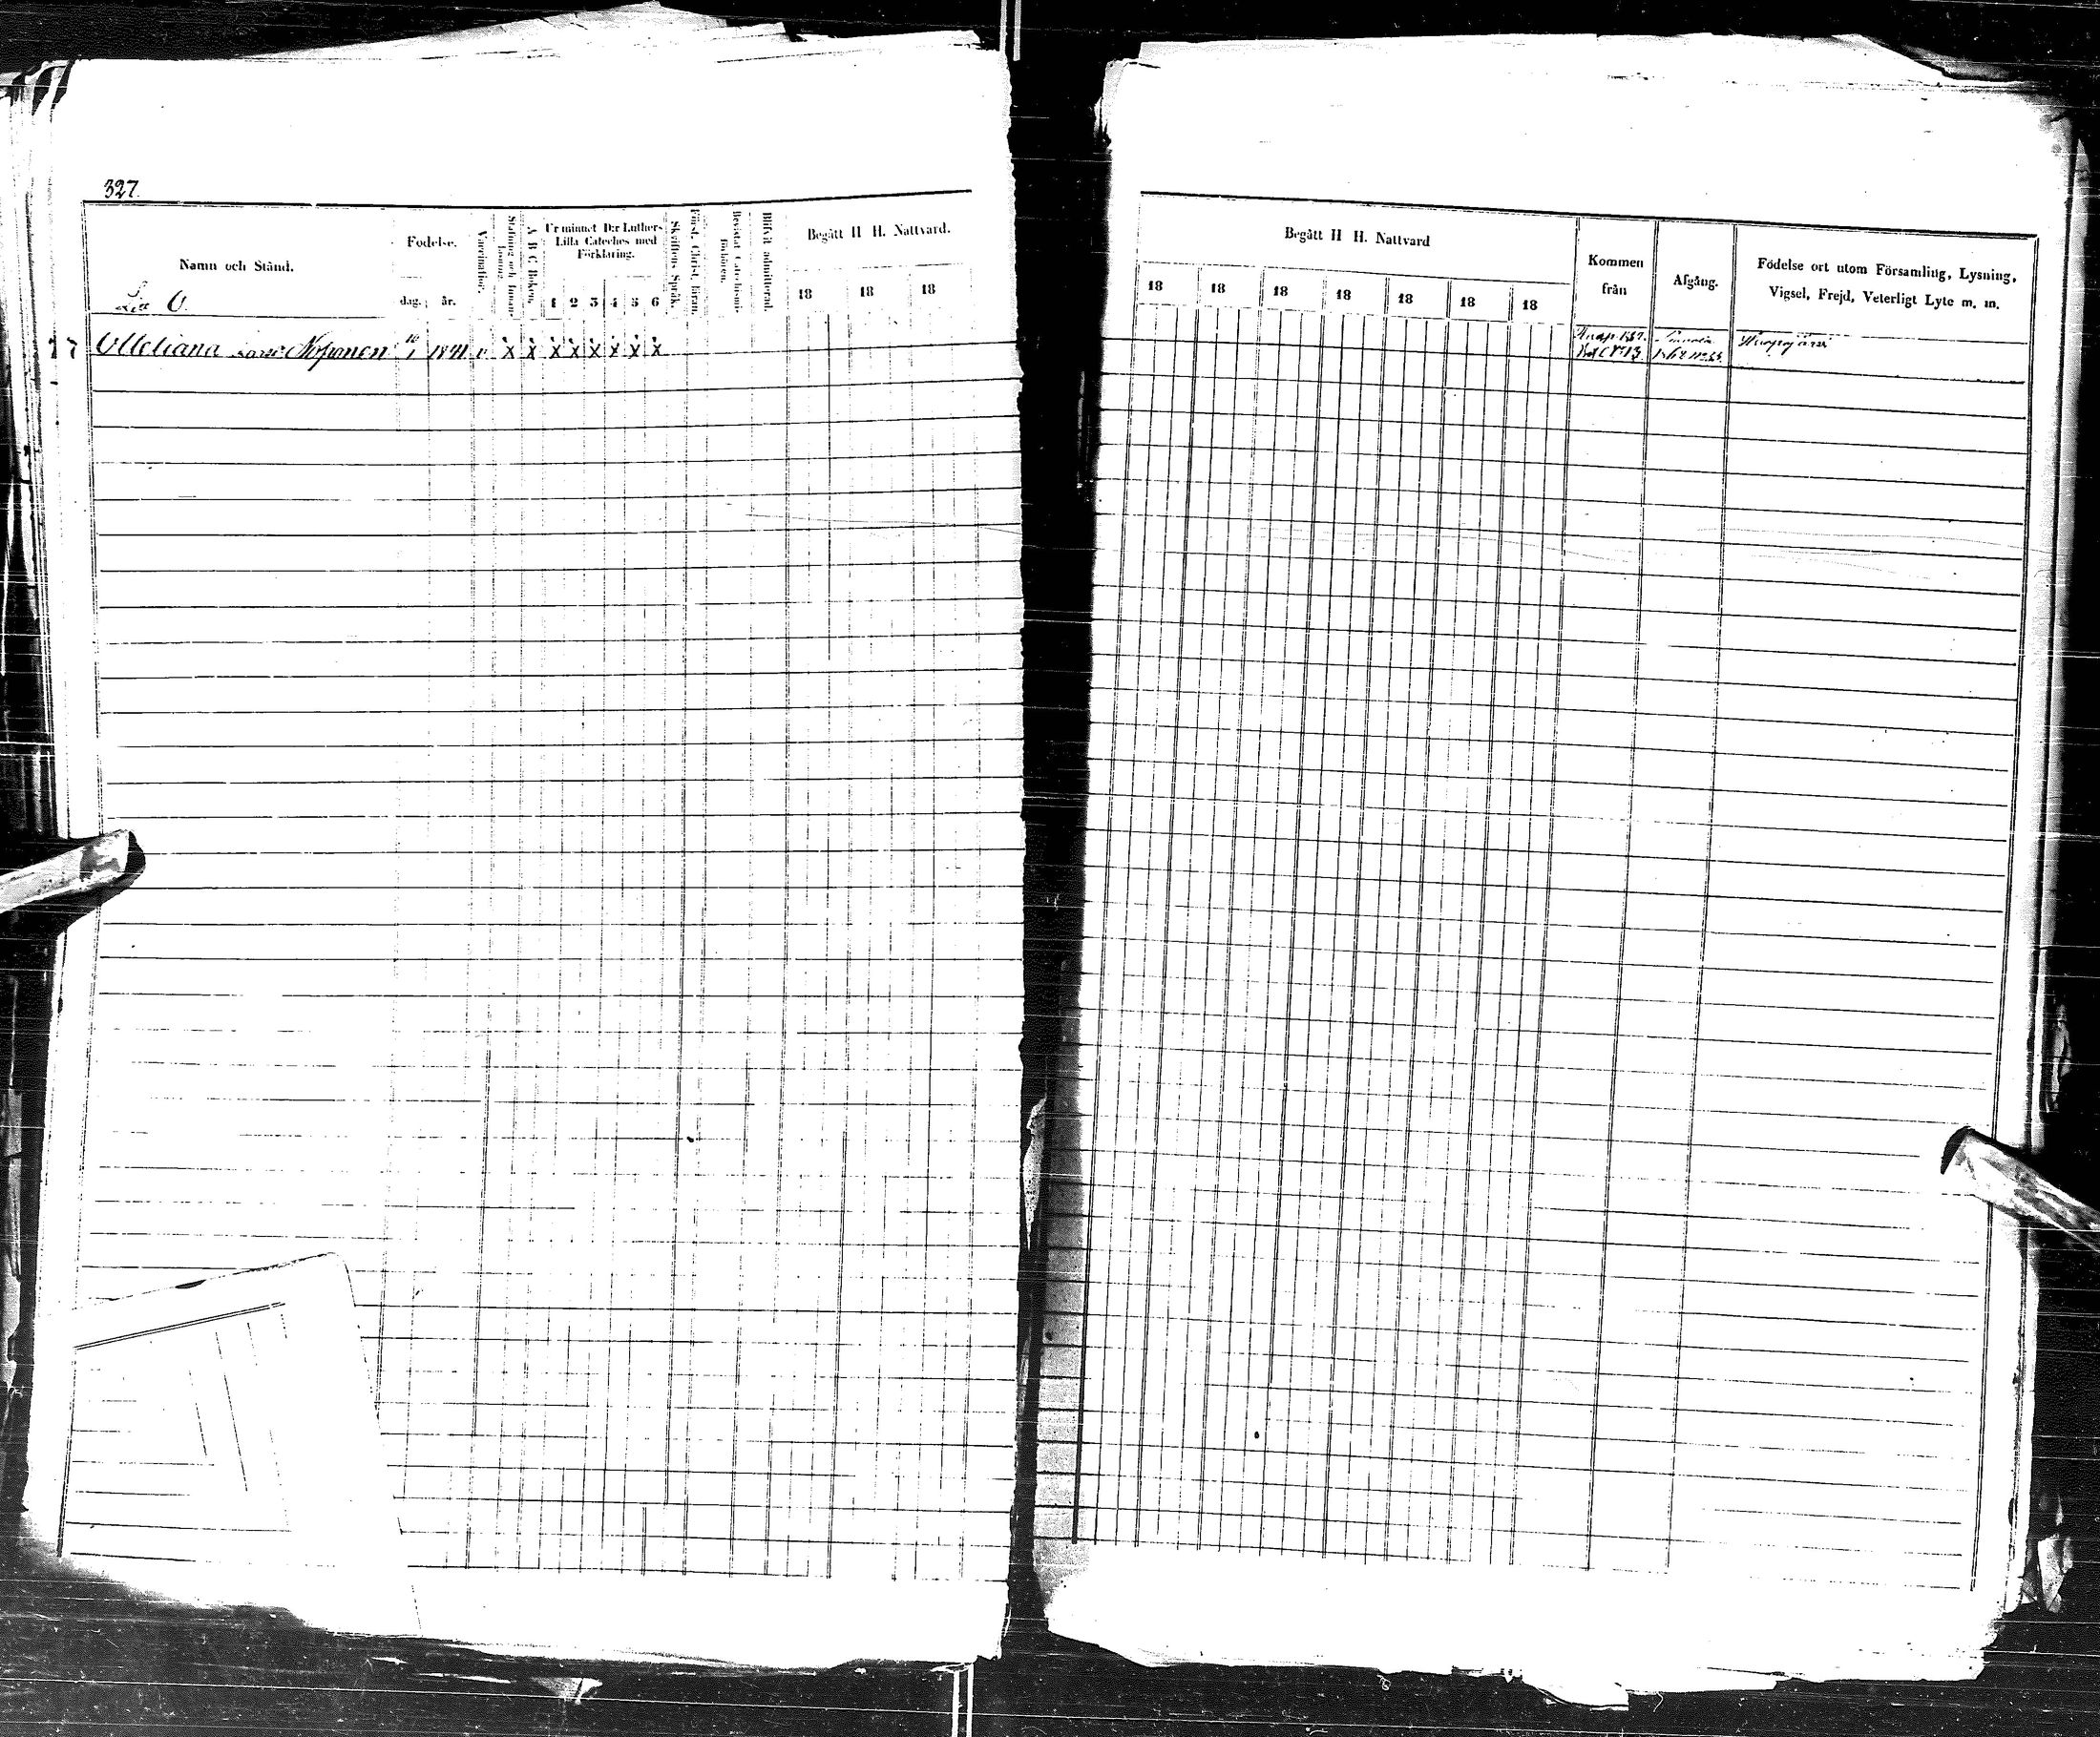 327.
Namn och Stånd.
Litt O.
Födelse.
dag. år.
Vaccination.
Stafning och Innan-läsning.
A B C Boken.
Ur minnet D:r Luthers Lilla Cateches med Förklaring.
1 2 3 4 5 6
Skriftens Språk.
Först. Christ. läran.
Bevistat Catechismi-förhören.
Blifvit admitterad.
Begått H H. Nattvard.
18 18 18
Noponen 10/1 1841 v x x x x x x x x
Begått H H. Nattvard
18 18 18 18 18 18 18
Kommen från
Afgång.
Födelse ort utom Församling, Lysning, Vigsel, Frejd, Veterligt Lyte m. m.